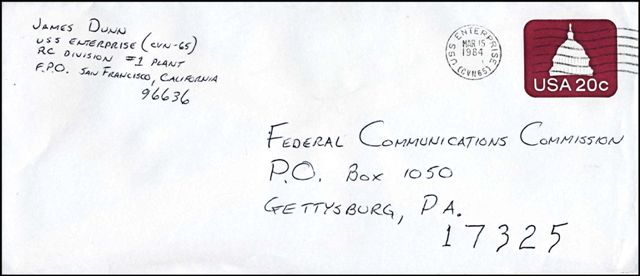 JAMES DUNN
USS ENTERPRISE (CVN-65)
RC DIVISION #1 PLANT
F.P.O. SAN FRANCISCO, CALIFORNIA
96636
USS ENTERPRISE
MAR 15
1984
(CVN65)
USA 20c
FEDERAL COMMUNICATIONS COMMISSION
P.O. BOX 1050
GETTYSBURG, PA.
17325